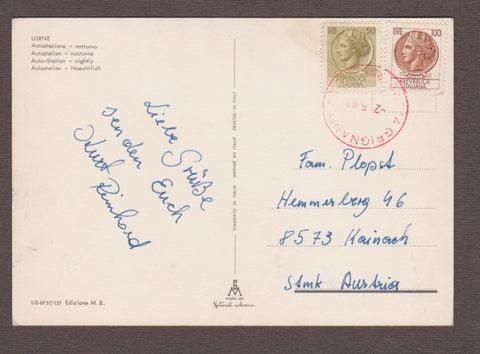 UDINE
Autostazione - notturno
Autostation - nocturne
Auto-Station - nightly
Autostation - Naechtlich
LIRE 50
LIRE 100
REPUBBLICA ITALIANA
GRIGNANO
Liebe Grüße
senden Euch
Kurt Reinhard
STAMPATO IN ITALIA IMPRIMÉ EN ITALIE PRINTED IN ITALY
Fam. Plopst
Hemmerberg 46
8573 Kainach
Stmk Austria
UD 69 57/127 Edizione M. B.
Natural colours